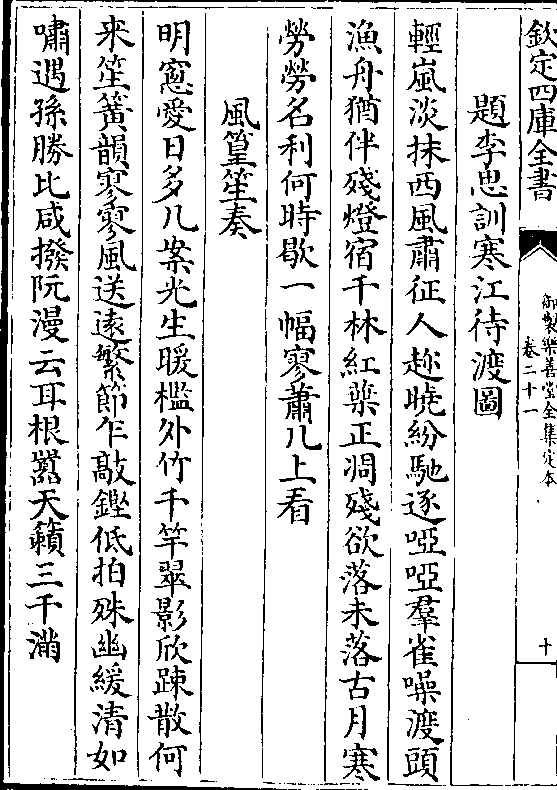 欽定四庫全書
御製樂善堂全集定本
卷二十一
十
題李忠訓寒江待渡圖
輕嵐淡抹西風肅征人趂曉紛馳逐啞啞羣雀噪渡頭
漁舟猶伴殘燈宿千林紅葉正凋殘欲落未落古月寒
勞勞名利何時歇一幅寥蕭几上看
風篁笙奏
明窻愛日多几案光生暖檻外竹千竿翠影欣踈散何
来笙簧韻寥寥風送遠繁節乍敲鏗低拍殊幽緩清如
嘯遇孫勝比咸撥阮漫云耳根嚣天籟三千滿